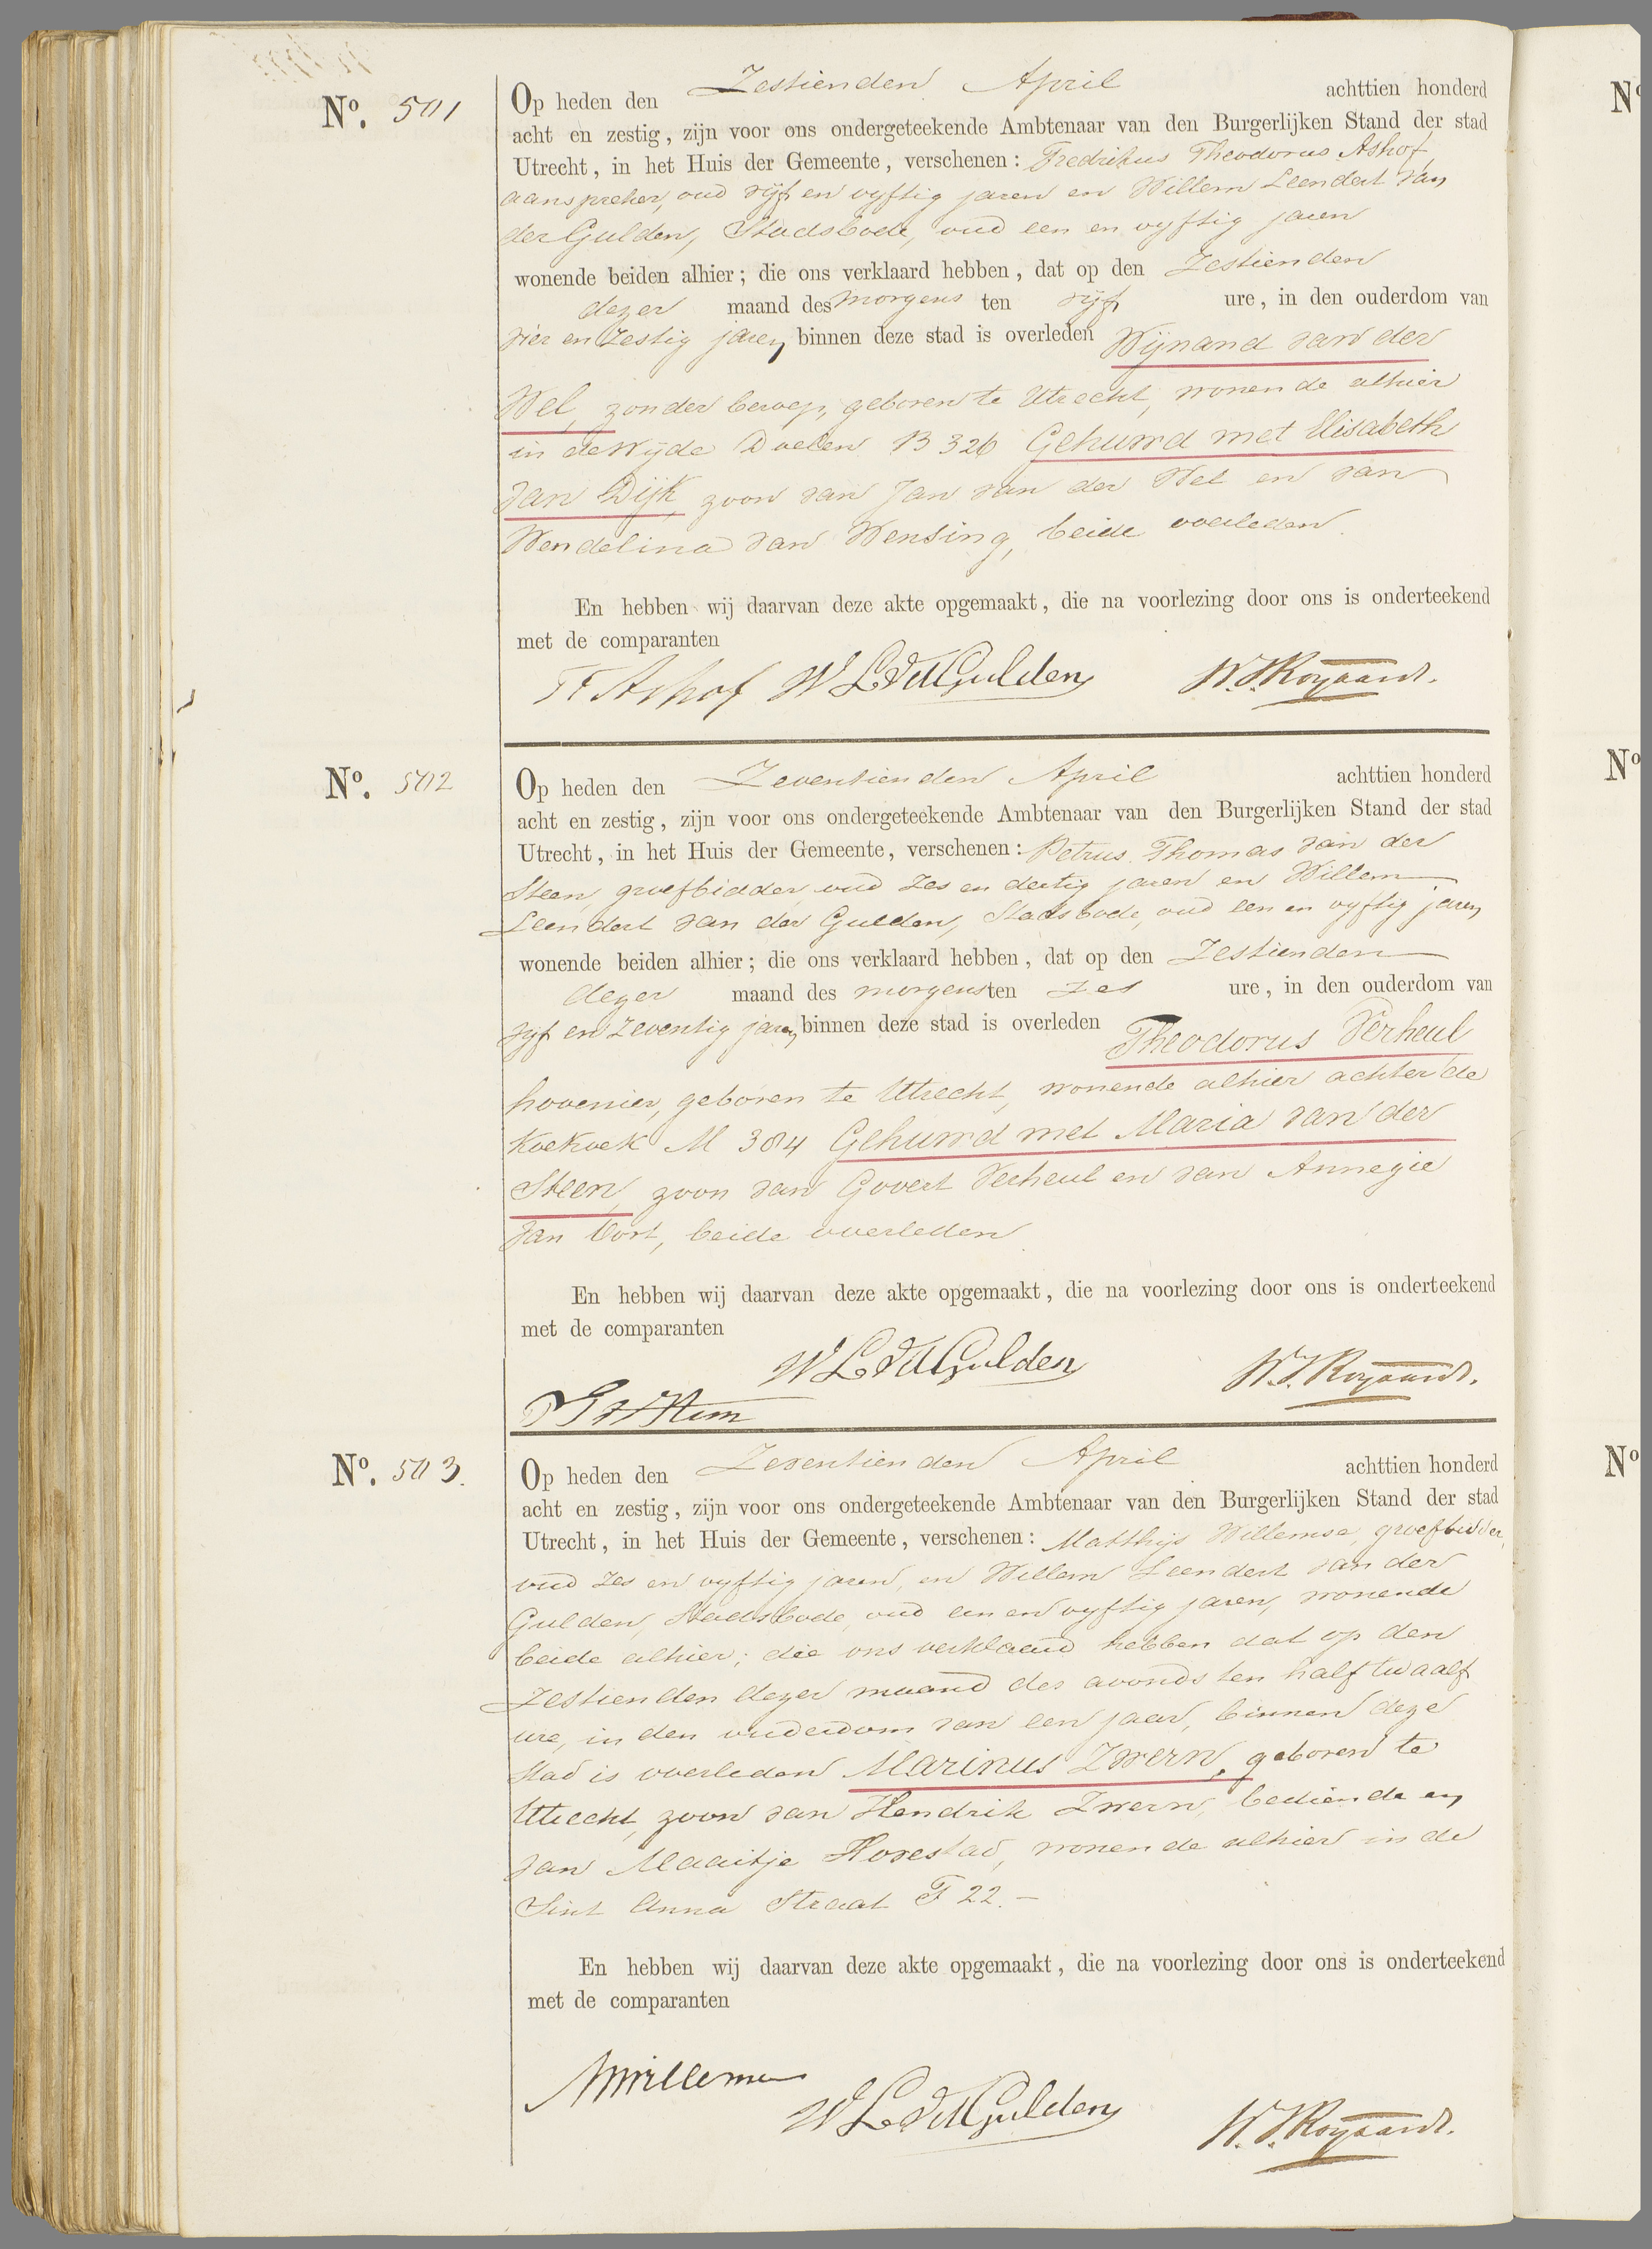 Nº. 501
Op heden den Zestienden April achttien honderd
acht en zestig, zijn voor ons ondergeteekende Ambtenaar van den Burgerlijken Stand der stad
Utrecht, in het Huis der Gemeente, verschenen: Fredrikus Theodorus Ashof,
aanspreker, oud vijf en vyftig jaren en Willem Leendert van
der Gulden, Stadsbode, oud een en vyftig jaren
wonende beiden alhier; die ons verklaard hebben, dat op den Zestienden
dezer maand des morgens ten vijf ure, in den ouderdom van
vier en Zestig jaren binnen deze stad is overleden Wijnand van der
Wel, zonder beroep, geboren te Utrecht, wonende alhier
in de Wijde Doelen B 326 Gehuwd met Elisabeth
van Dijk, zoon van Jan van der Wel en van
Wendelina van Wensing, beide overleden.
En hebben wij daarvan deze akte opgemaakt, die na voorlezing door ons is onderteekend
met de comparanten
Ashof WLvdGulden W.J.Royaards.
Nº. 502
Op heden den Zeventienden April achttien honderd
acht en zestig, zijn voor ons ondergeteekende Ambtenaar van den Burgerlijken Stand der stad
Utrecht, in het Huis der Gemeente, verschenen: Petrus Thomas van der
Steen, groefbidder, oud Zes en dertig jaren en Willem
Leendert van der Gulden, Stadsbode, oud een en vyftig jaren
wonende beiden alhier; die ons verklaard hebben, dat op den Zestienden
dezer maand des morgens ten Zes ure, in den ouderdom van
vijf en Zeventig jaren binnen deze stad is overleden Theodorus Verheul
hovenier, geboren te Utrecht, wonende alhier achter de
Koekoek M 384 Gehuwd met Maria van der
Steen, zoon van Govert Verheul en van Annegie
van Oort, beide overleden
En hebben wij daarvan deze akte opgemaakt, die na voorlezing door ons is onderteekend
met de comparanten
WLvdGulden W.J.Royaards.
Nº. 503.
Op heden den Zeventienden April achttien honderd
acht en zestig, zijn voor ons ondergeteekende Ambtenaar van den Burgerlijken Stand der stad
Utrecht, in het Huis der Gemeente, verschenen: Matthijs Willemse, groefbidder,
oud Zes en vyftig jaren, en Willem Leendert van der
Gulden, Stadsbode, oud een en vyftig jaren, wonende
beide alhier; die ons verklaard hebben dat op den
Zestienden dezer maand des avonds ten half twaalf
ure, in den ouderdom van een jaar, binnen deze
Stad is overleden Marinus Zwern, geboren te
Utrecht, zoon van Hendrik Zwern, bediende en
van Maaitje Hovestad, wonende alhier in de
Sint Anna Straat F 22.—
En hebben wij daarvan deze akte opgemaakt, die na voorlezing door ons is onderteekend
met de comparanten
MWillemse
WLvdGulden W.J.Royaards.
Nº
Nº
Nº